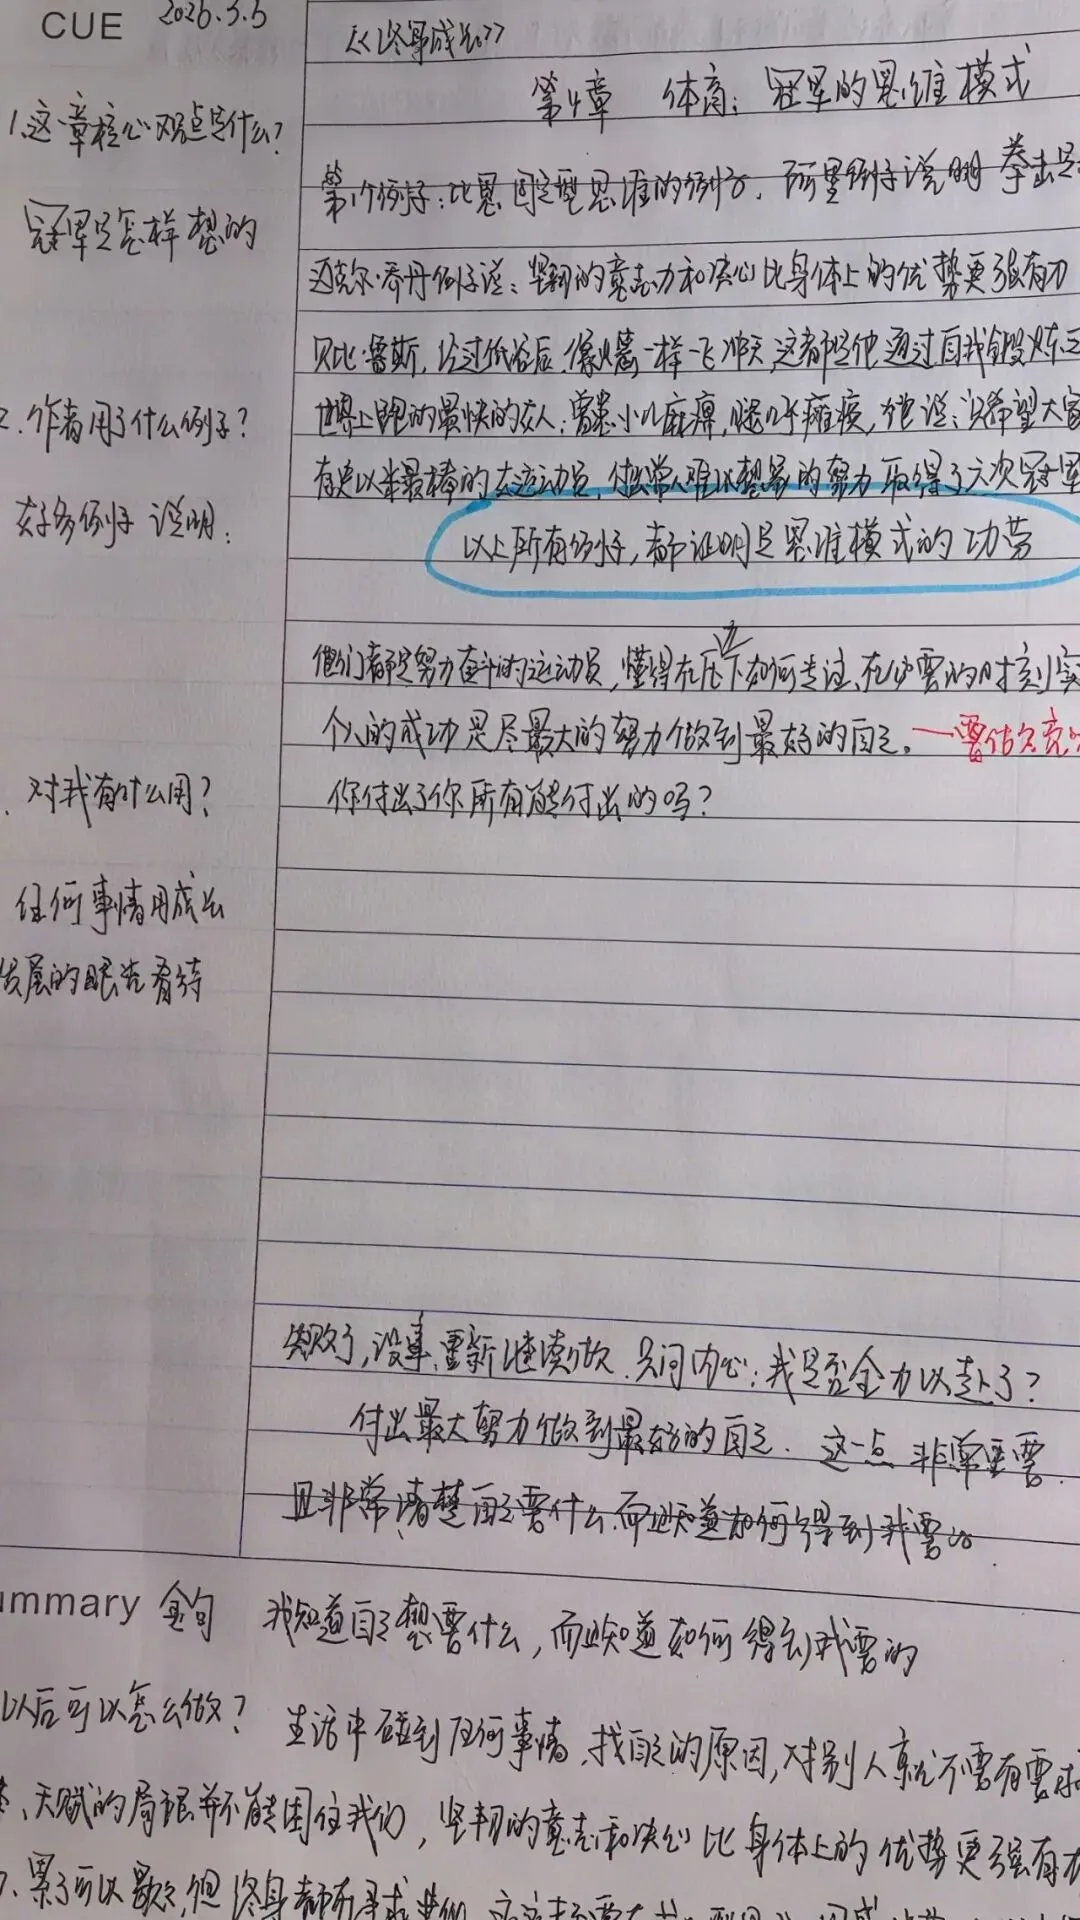 CUE 2026.3.5
《终身成长》
第4章 体育：冠军的思维模式
1.这一章核心观点是什么？
冠军是怎样想的
第1个例子：比恩固定型思维的例子，阿里例子说明 拳击是
迈克尔·乔丹例子说：坚韧的意志力和决心比身体上的优势更强有力
贝比·鲁斯，经过低谷后，像火箭一样一飞冲天，这都是他通过自我锻炼
2.作者用了什么例子？
世界上跑的最快的女人：曾患小儿麻痹，腿几乎瘫痪，她说：只希望大家
有史以来最棒的女运动员，付出常人难以想象的努力取得了六次冠军
好多例子 说明：
以上所有例子，都证明是思维模式的功劳
他们都是努力奋斗的运动员，懂得在压力下如何专注、在必要的时刻
个人的成功是尽最大的努力做到最好的自己。
对我有什么用？
你付出了你所有能付出的吗？
任何事情用成长
发展的眼光看待
失败了，没事，重新继续做，只问内心：我是否全力以赴了？
付出最大努力做到最好的自己。这一点 非常重要
且非常清楚自己要什么，而且知道如何得到我要的
ummary 金句 我知道自己想要什么，而且知道如何得到我要的
以后可以怎么做？ 生活中碰到任何事情，找自己的原因，对别人就不要有要求
、天赋的局限并不能困住我们，坚韧的意志和决心比身体上的优势更强有力
、累了可以歇，但终身都